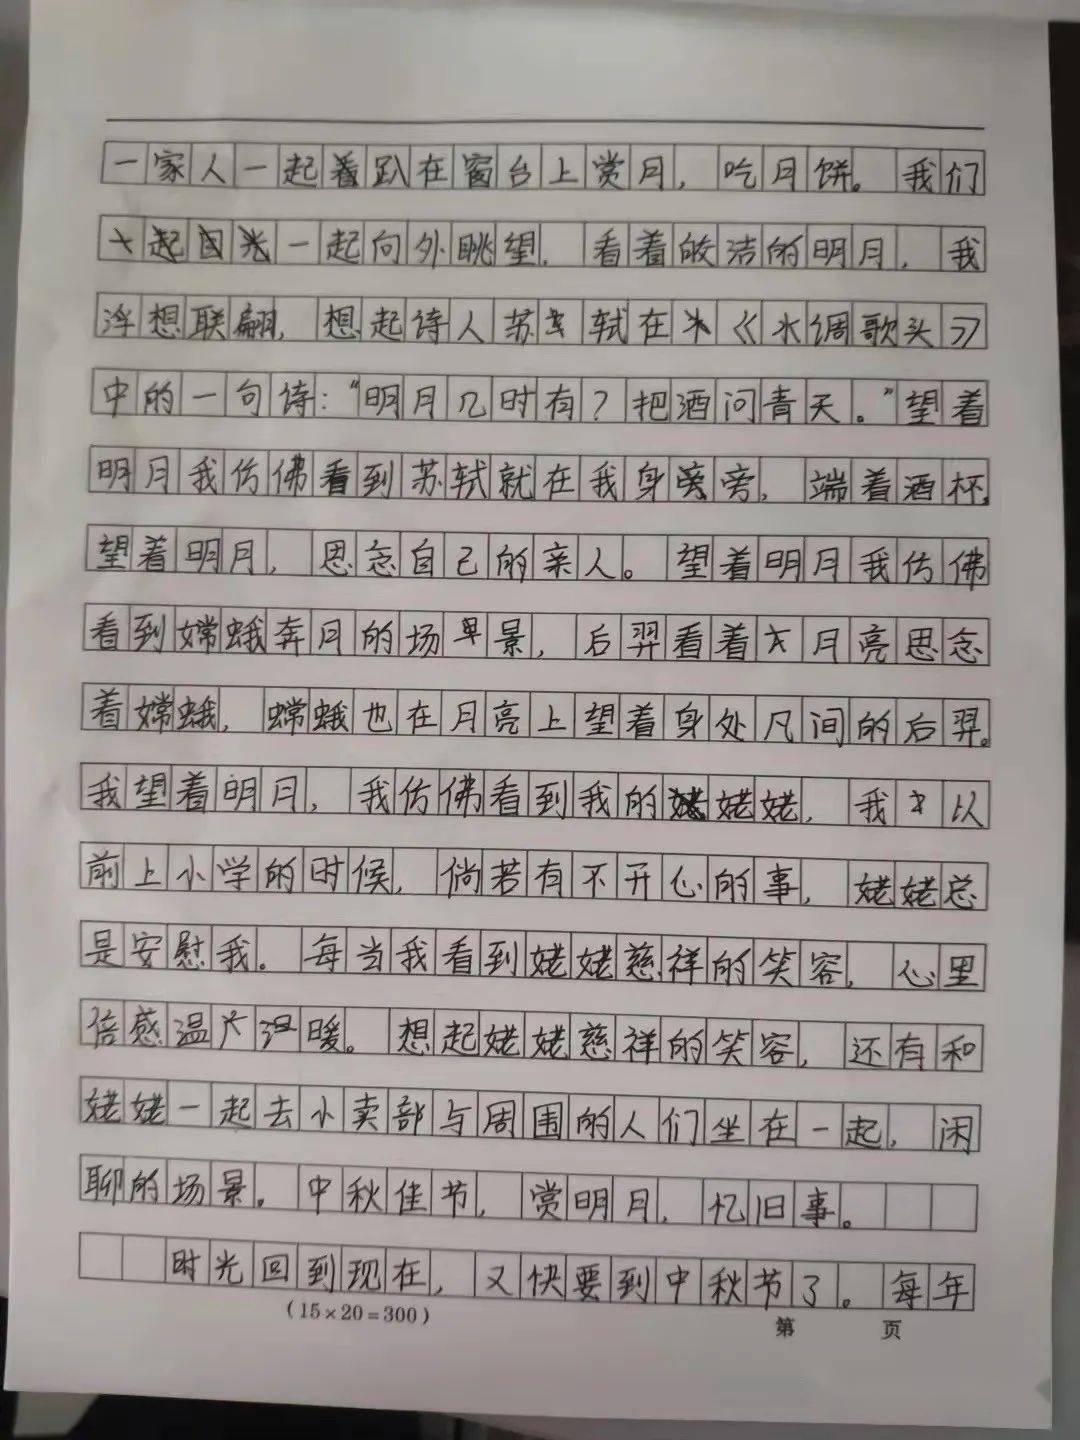 一家人一起着趴在窗台上赏月，吃月饼。我们
一起向外眺望，看着皎洁的明月，我
浮想联翩，想起诗人苏轼在《水调歌头》
中的一句诗：“明月几时有？把酒问青天。”望着
明月我仿佛看到苏轼就在我身旁，端着酒杯，
望着明月，思念自己的亲人。望着明月我仿佛
看到嫦娥奔月的场景，后羿看着月亮思念
着嫦娥，嫦娥也在月亮上望着身处凡间的后羿。
我望着明月，我仿佛看到我的姥姥，我以
前上小学的时候，倘若有不开心的事，姥姥总
是安慰我。每当我看到姥姥慈祥的笑容，心里
倍感温暖。想起姥姥慈祥的笑容，还有和
姥姥一起去小卖部与周围的人们坐在一起，闲
聊的场景。中秋佳节，赏明月，忆旧事。
时光回到现在，又快要到中秋节了。每年
（15×20=300）
第 页